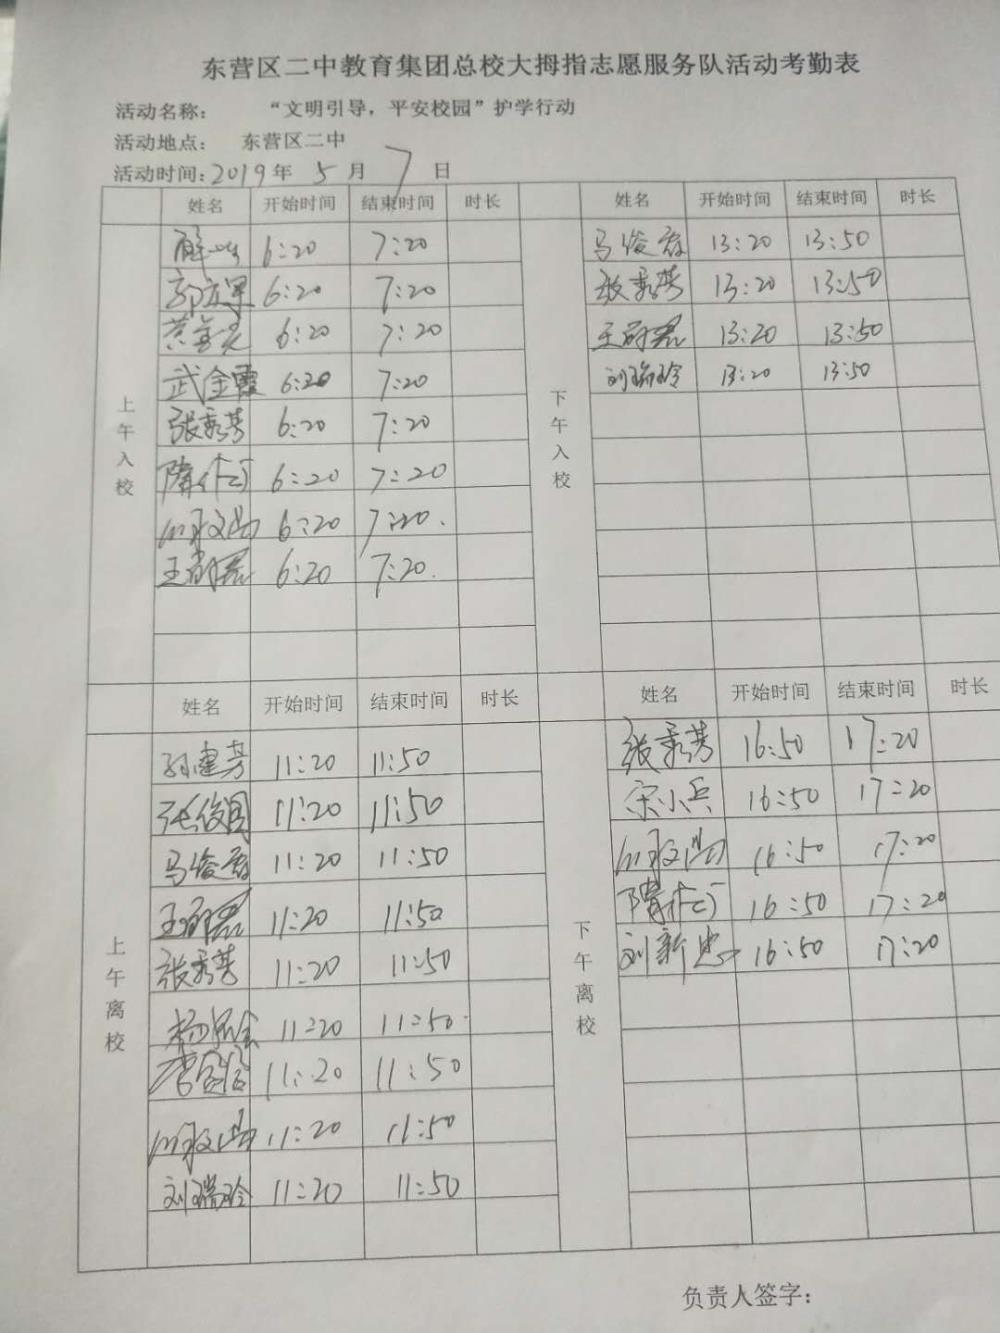 东营区二中教育集团总校大拇指志愿服务队活动考勤表
活动名称： “文明引导，平安校园”护学行动
活动地点： 东营区二中
活动时间：2019年 5 月 7 日
姓名 开始时间 结束时间 时长 姓名 开始时间 结束时间 时长
上午入校
6:20 7:20
6:20 7:20
6:20 7:20
武金霞 6:20 7:20
张秀芳 6:20 7:20
6:20 7:20
6:20 7:20.
6:20 7:20.
下午入校
13:20 13:50
张秀芳 13:20 13:50
13:20 13:50
刘瑞玲 13:20 13:50
姓名 开始时间 结束时间 时长 姓名 开始时间 结束时间 时长
上午离校
孙建芳 11:20 11:50
张俊国 11:20 11:50
11:20 11:50
11:20 11:50
张秀芳 11:20 11:50
11:20 11:50.
11:20 11:50
11:20 11:50
刘瑞玲 11:20 11:50
下午离校
张秀芳 16:50 17:20
宋小兵 16:50 17:20
16:50 17:20
16:50 17:20
刘新忠 16:50 17:20
负责人签字：